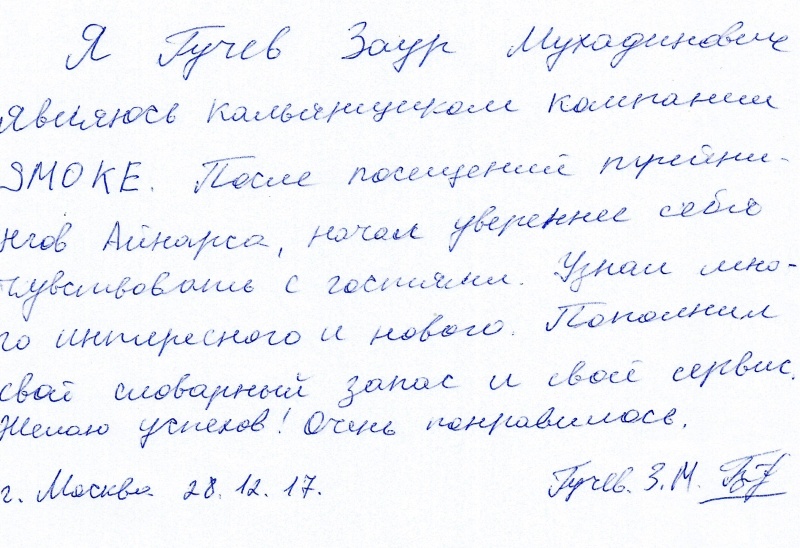 Я Гучев Заур Мухадинович
являюсь кальянщиком компании
SMOKE. После посещений трейни-
нгов Айнарса, начал увереннее себя
чувствовать с гостями. Узнал мно-
го интересного и нового. Пополнил
свой словарный запас и свой сервис.
Желаю успехов! Очень понравилось.
г. Москва 28.12.17. Гучев. З.М.